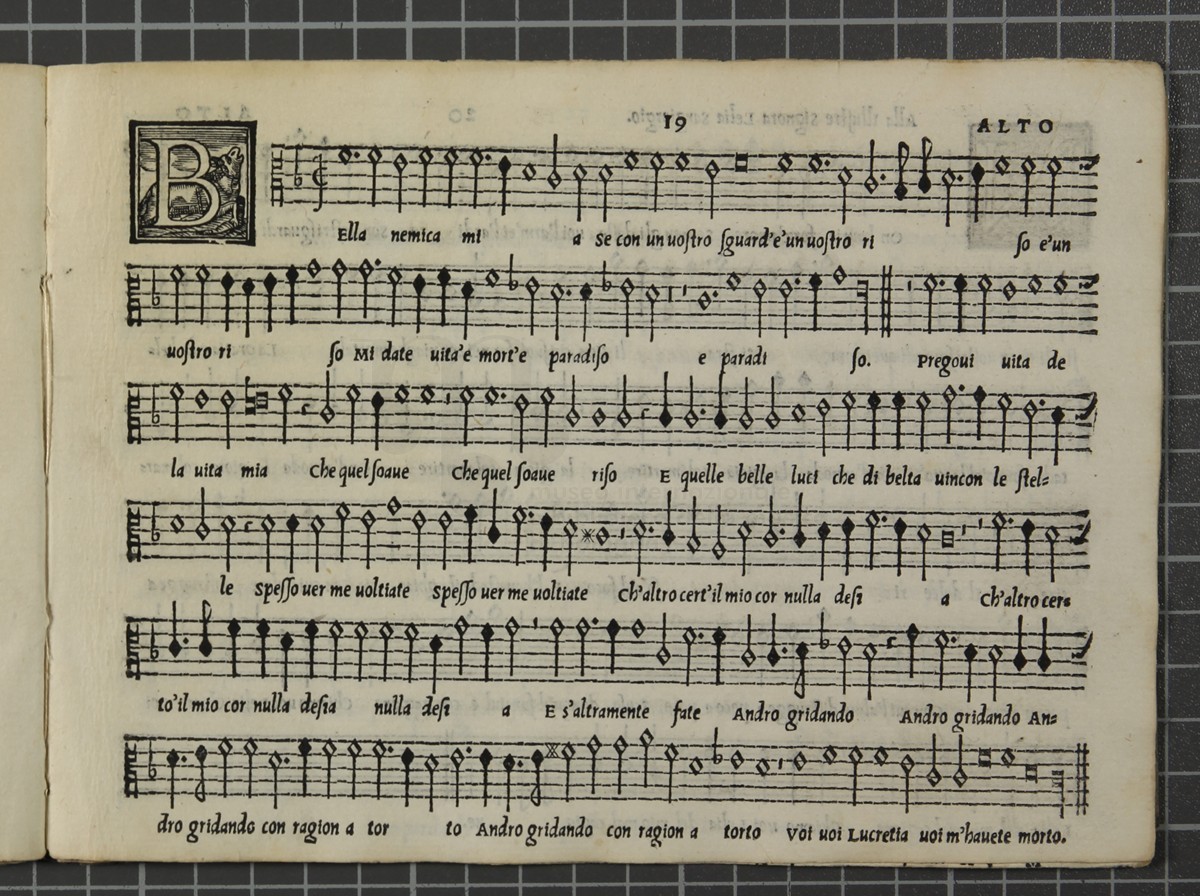 19 ALTO
BElla nemica mi a se con un uoſtro ſguard'e'un uoſtro ri ſo e'un
uoſtro ri ſo Mi date uita'e mort'e paradiſo e paradi ſo. Pregoui uita de
la uita mia Che quel ſoaue Che quel ſoaue riſo E quelle belle luci che di belta uincon le ſtel=
le Speſſo uer me uoltiate Speſſo uer me uoltiate Ch'altro cert'il mio cor nulla deſi a Ch'altro cer=
to'il mio cor nulla deſia nulla deſi a E s'altramente fate Andro gridando Andro gridando An=
dro gridando con ragion a tor to Andro gridando con ragion a torto Voi uoi Lucretia uoi m'hauete morto.